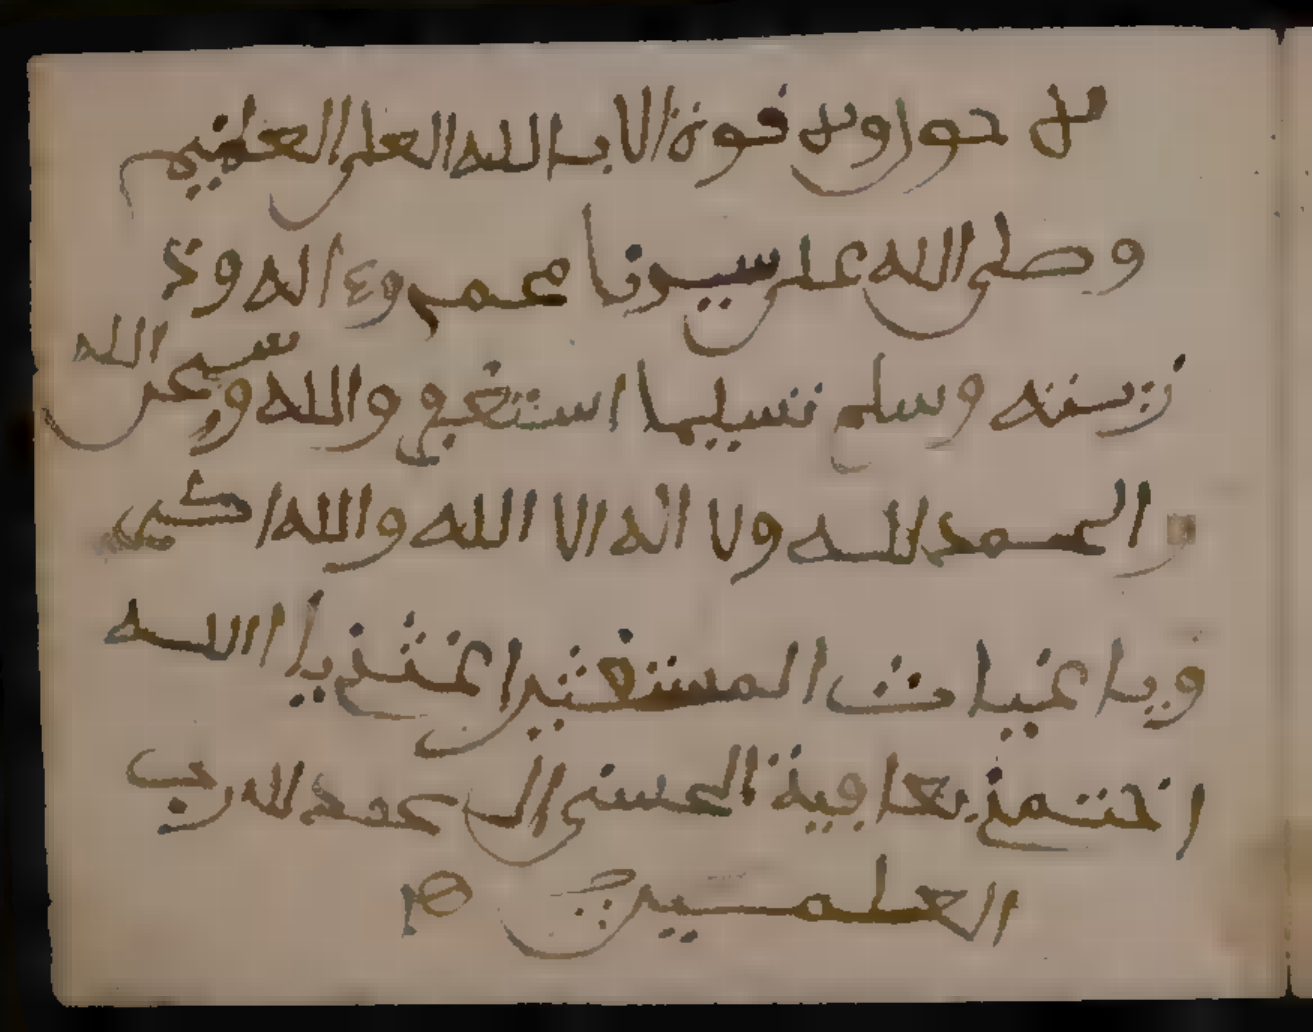 لا حول ولا قوة الا بالله العلي العظيم
وصلى الله على سيدنا محمد وع اله وذ
زيته وسلم تسليما استغفر الله وسبحن الله
والحمد لله ولا اله الا الله والله اكبر
ويا غياث المستغثين اغثني يا الله
اختمني بعافية الحسنى الحمد لله رب
العلمين